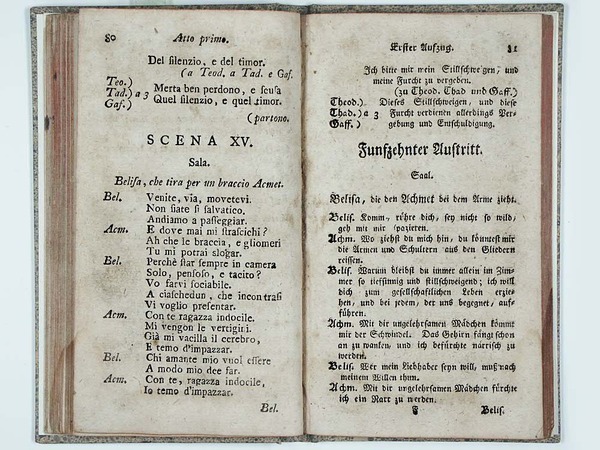 80 Atto primo.
Del silenzio, e del timor.
(a Teod. a Tad. e Gaf.
Teo.)
Tad.) a 3 Merta ben perdono, e scusa
Gaf.) Quel silenzio, e quel timor.
(partono.
SCENA XV.
Sala.
Belisa, che tira per un braccio Acmet.
Bel. Venite, via, movetevi.
Non siate si salvatico.
Andiamo a passeggiar.
Acm. E dove mai mi strascichi?
Ah che le braccia, e gliomeri
Tu mi potrai slogar.
Bel. Perchè star sempre in camera
Solo, pensoso, e tacito?
Vo farvi sociabile.
A ciaschedun, che incontrasi
Vi voglio presentar.
Acm. Con te ragazza indocile.
Mi vengon le vertigini.
Già mi vacilla il cerebro,
E temo d'impazzar.
Bel. Chi amante mio vuol essere
A modo mio dee far.
Acm. Con te, ragazza indocile,
Io temo d'impazzar.
Bel.
Erster Aufzug. 81
Ich bitte mir mein Stillschweigen, und
meine Furcht zu vergeben.
(zu Theod. Thad und Gaff.)
Theod.) Dieses Stillschweigen, und diese
Thad.) a 3 Furcht verdienen allerdings Ver-
Gaff.) gebung und Entschuldigung.
Funfzehnter Auftritt.
Saal.
Belisa, die den Achmet bei dem Arme zieht.
Belis. Komm, rühre dich, sey nicht so wild,
geh mit mir spazieren.
Achm. Wo ziehst du mich hin, du könntest mir
die Armen und Schultern aus den Gliedern
reissen.
Belis. Warum bleibst du immer allein im Zim-
mer so tiefsinnig und stillschweigend; ich will
dich zum gesellschaftlichen Leben erzie-
hen, und bei jedem, der uns begegnet, auf-
führen.
Achm. Mit dir ungelehrsamen Mädchen kömmt
mir der Schwindel. Das Gehirn fängt schon
an zu wanken, und ich befürchte närrisch zu
werden.
Belis. Wer mein Liebhaber seyn will, muß nach
meinem Willen thun.
Achm. Mit dir ungelehrsamen Mädchen fürchte
ich ein Narr zu werden.
Belis.